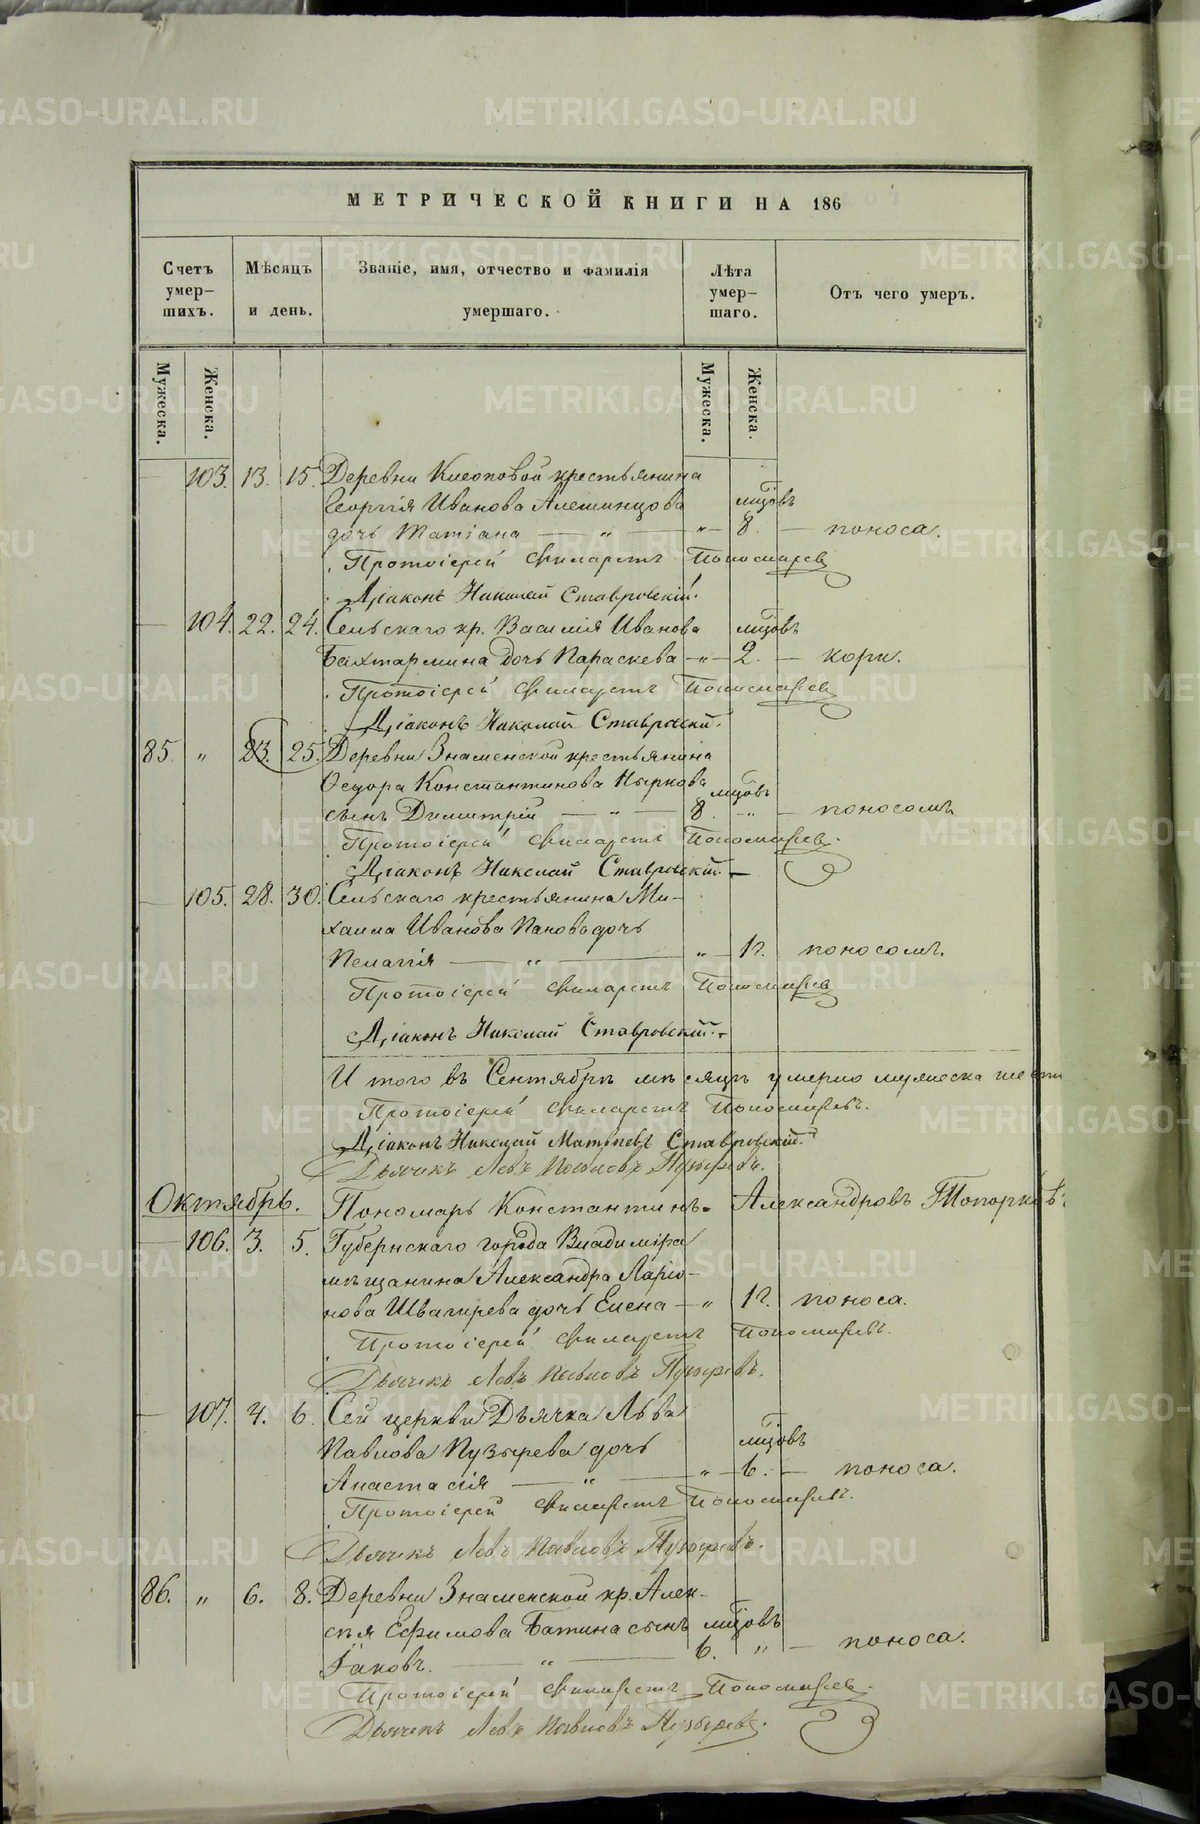 МЕТРИЧЕСКОЙ КНИГИ НА 186
Счетъ умер-шихъ.
Мѣсяцъ и день.
Званіе, имя, отчество и фамилія умершаго.
Лѣта умер-шаго.
Отъ чего умеръ.
Мужеска. Женска. Мужеска. Женска.
103. 13. 15. Деревни крестьянина
Георгія Иванова Алешинцова мцовъ
дочь Татіана — „ — „ — 8. — поноса.
Протоіерей Филаретъ Пономарев
Діаконъ Николай Ставровскій.
104. 22. 24. Сельскаго кр. Василія Иванова мцовъ
Бахтармина дочь Параскева — „ — 2. — кори.
Протоіерей Филаретъ Пономарев
Діаконъ Николай Ставровскій.
85. „ 23. 25. Деревни Знаменской крестьянина
Ѳедора Константинова Пыркова мцовъ
сынъ Димитрій — „ — 8. — „ — поносомъ
Протоіерей Филаретъ Пономарев.
Діаконъ Николай Ставровскій.
105. 28. 30. Сельскаго крестьянина Ми-
хаила Иванова Панова дочь
Пелагія — „ — „ — 1 г. поносомъ.
Протоіерей Филаретъ Пономарев
Діаконъ Николай Ставровскій.
И того въ Сентябрѣ мѣсяцѣ умерло мужеска
Протоіерей Филаретъ Пономаревъ.
Діаконъ Николай Матѳеевъ Ставровскій.
Дьячекъ Левъ Павловъ Пузыревъ.
Октябрь. Пономарь Константинъ Александровъ Топорковъ
106. 3. 5. Губернскаго города Владиміра
мѣщанина Александра Ларіо-
нова Швагирева дочь Елена — „ 1 г. поноса.
Протоіерей Филаретъ Пономаревъ.
Дьячекъ Левъ Павловъ Пузыревъ.
107. 4. 6. Сей церкви Дьячка Льва
Павлова Пузырева дочь мцовъ
Анастасія — „ — „ — 6. — поноса.
Протоіерей Филаретъ Пономаревъ.
Дьячекъ Левъ Павловъ Пузыревъ.
86. „ 6. 8. Деревни Знаменской кр. Алек-
сѣя Ефимова Батина сынъ мцовъ
Іаковъ. — „ — 6. „ — поноса.
Протоіерей Филаретъ Пономарев.
Дьячекъ Левъ Павловъ Пузыревъ.
METRIKI.GASO-URAL.RU